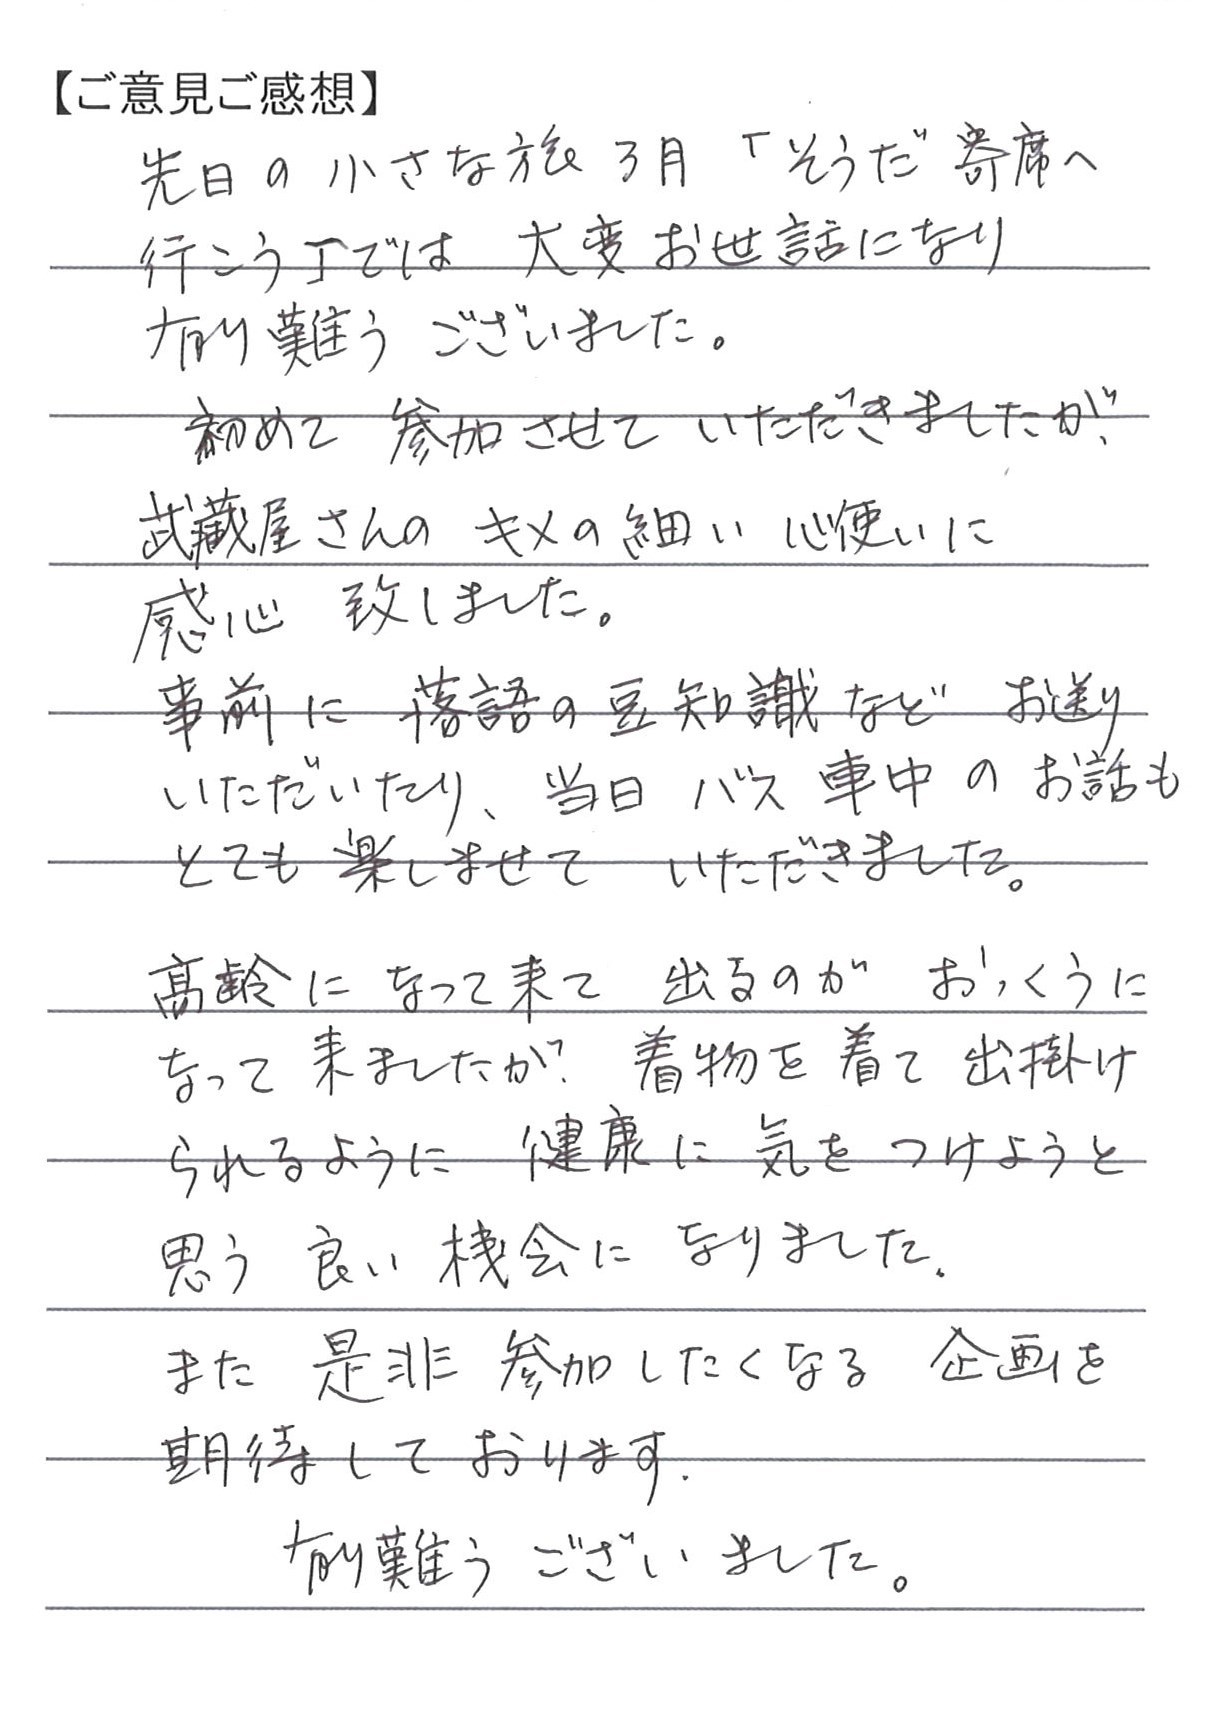 【ご意見ご感想】
先日の小さな旅3月「そうだ寄席へ
行こう」では大変お世話になり
有難うございました。
初めて参加させていただきましたが、
武蔵屋さんのキメの細い心使いに
感心致しました。
事前に落語の豆知識などお送り
いただいたり、当日バス車中のお話も
とても楽しませていただきました。
高齢になって来て出るのがおっくうに
なって来ましたが、着物を着て出掛け
られるように健康に気をつけようと
思う良い機会になりました。
また是非参加したくなる企画を
期待しております。
有難うございました。